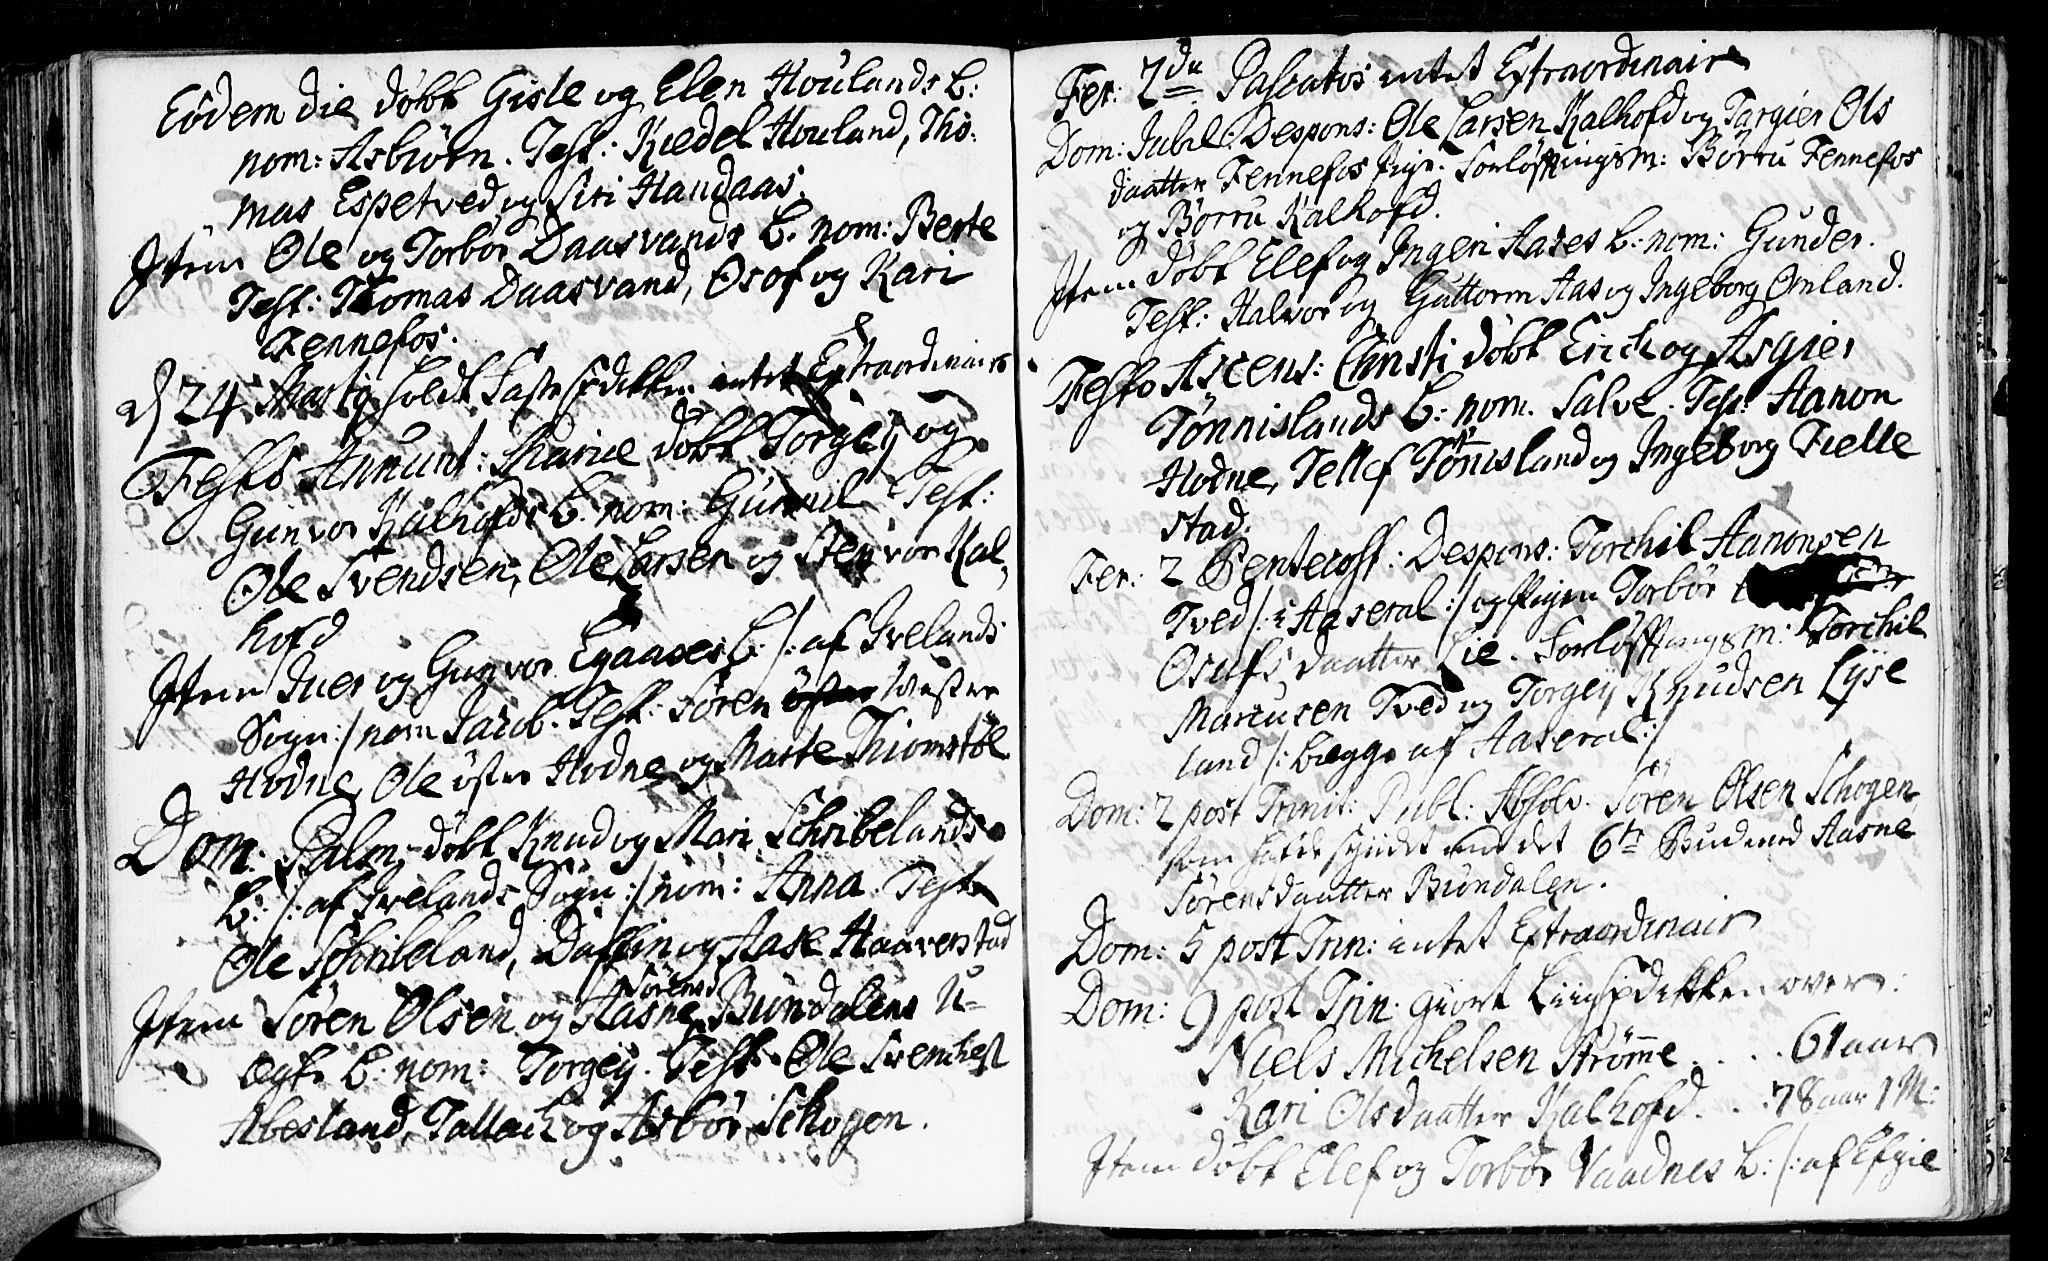 Eôdem die døbt Gisle og Elen Houlands b:
nom: Asbiörn. Test: Kiedel Houland, Tho:
mas Espetved og Siri Handaas.
Item Ole og Torbor Daasvands b. nom: Berte
Test: Thomas Daasvand, Osof og Kari
Fennefos.
d 24 Martij holdt Faste Prediken intet Extraordinair
Festo Annunt: Mariæ døbt Torgeÿ og
Gunvor Kalhofds b. nom: Gunnil Test:
Ole Svendsen, Ole Larsen og Steÿvor Kal-
hofd
Item Iver og Gunvor Egaases b: /: af Ivelands
Sogn :/ nom Jacob. Test: Sören öster Westre
Hodne, Ole öster Hodne og Marte Thiomstöl
Dom: Palm: döbt Knud og Mari Schribelands
b: /: af Ivelands Sogn :/ nom: Anna. Test
Ole Schribeland, Daffin og Aase Haaverstad
Item Sören Olsen og Aasne Sörensd Bundalens U-
ægte b: nom: Torgeÿ. Test: Ole Svenchest
Abesland, Tallach og Asbör Schogen.
Fer: 2da Pascatos intet Extraordinair
Dom: Jubil: Despons: Ole Larsen Kalhofd og Targier Ols
daatter Fennefos pige. Forlöftningsm: Börru Fennefos
og Börru Kalhofd.
Item döbt Elef og Ingeri Aases b: nom: Gunder.
Test: Halvor og Guttorm Aas og Ingeborg Omland.
Festo Ascens: Christi döbt Erich og Asgier
Tönnislands b: nom. Salve. Test: Aanon
Hodne, Tellef Tönnisland og Ingeborg Fielle
stad.
Fer: 2 Pentecost: Despons: Torchil Aanonsen
Tved /: i Aaseral :/ og Pigen Torbör
Osufs daatter Lie. Forlöftningsm: Torchil
Marcusen Tved og Torgeÿ Knudsen Lÿse
land /: begge af Aaseral :/
Dom: 2 post Trinit: Publ: Absolv. Sören Olsen Schogen
som hafde syndet mod det 6te Bud med Aasne
Sörensdaatter Bundalen.
Dom: 5 post Trin: intet Extraordinair
Dom: 9 post Trin. giort Liigprediken over:
Niels Michelsen Strömme . . . . 61 aar
Kari Olsdaatter Kalhofd. . . . 78 aar 1 M:
Item döbt Elef og Torbör Vaadnes b: /: af Efgie